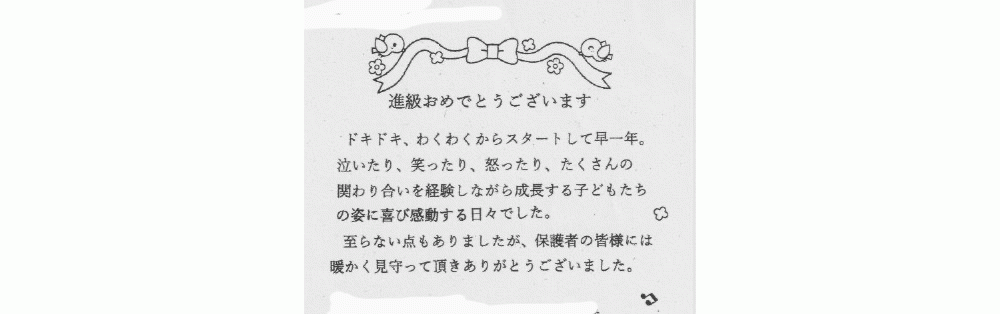 進級おめでとうございます
ドキドキ、わくわくからスタートして早一年。
泣いたり、笑ったり、怒ったり、たくさんの
関わり合いを経験しながら成長する子どもたち
の姿に喜び感動する日々でした。
至らない点もありましたが、保護者の皆様には
暖かく見守って頂きありがとうございました。